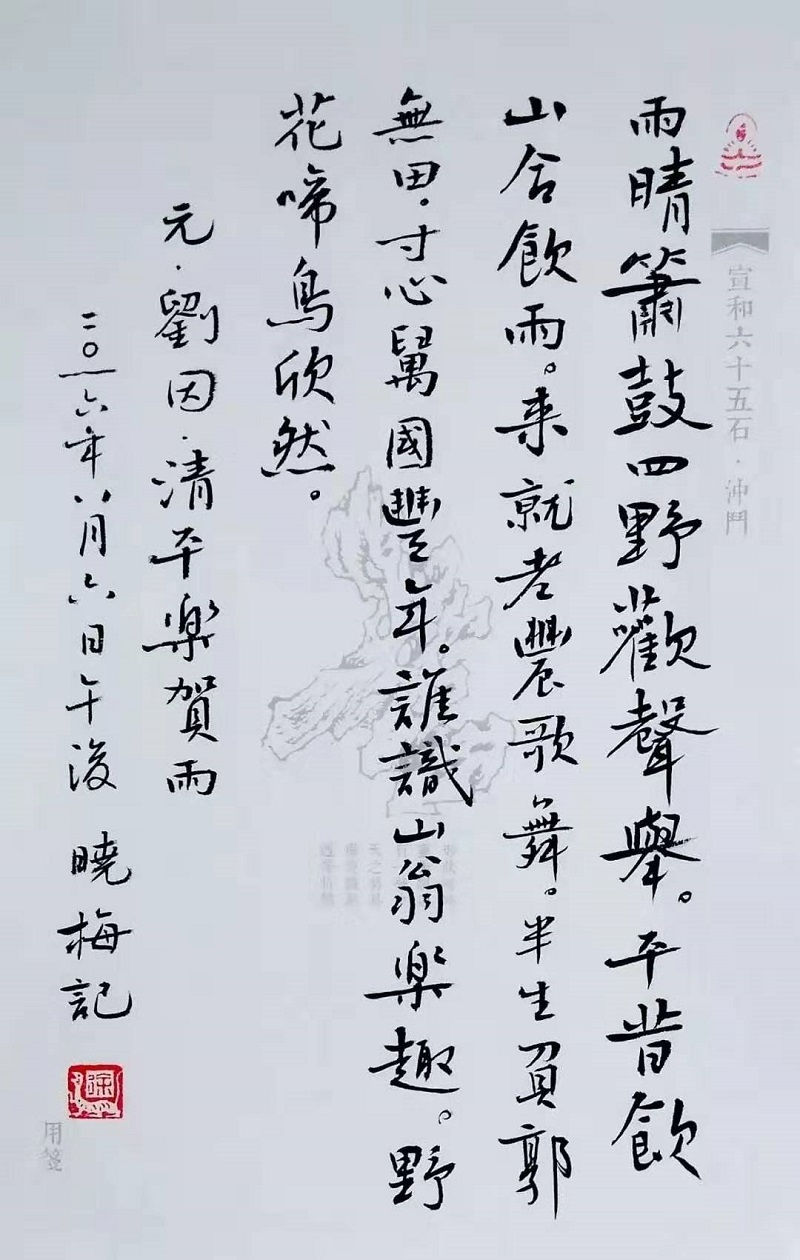 雨晴簫鼓四野歡聲舉。平昔飲
山舍飲雨。来就老農歌舞。半生負郭
無田。寸心萬國豐年。誰識山翁樂趣。野
花啼鳥欣然。
元·劉因·清平樂賀雨
二〇一六年八月六日午後 曉梅記
宣和六十五石·沖鬥
用箋